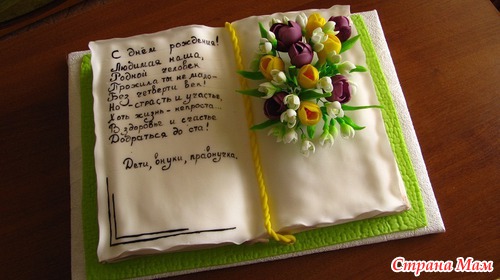 С днём рождения!
Любимая наша,
Родной человек
Прожила ты не мало-
Без четверти век!
Но -страсть и участье,
Хоть жизнь - непроста...
В здоровье и счастье
Добраться до ста!
Дети, внуки, правнучка.
Страна Мам